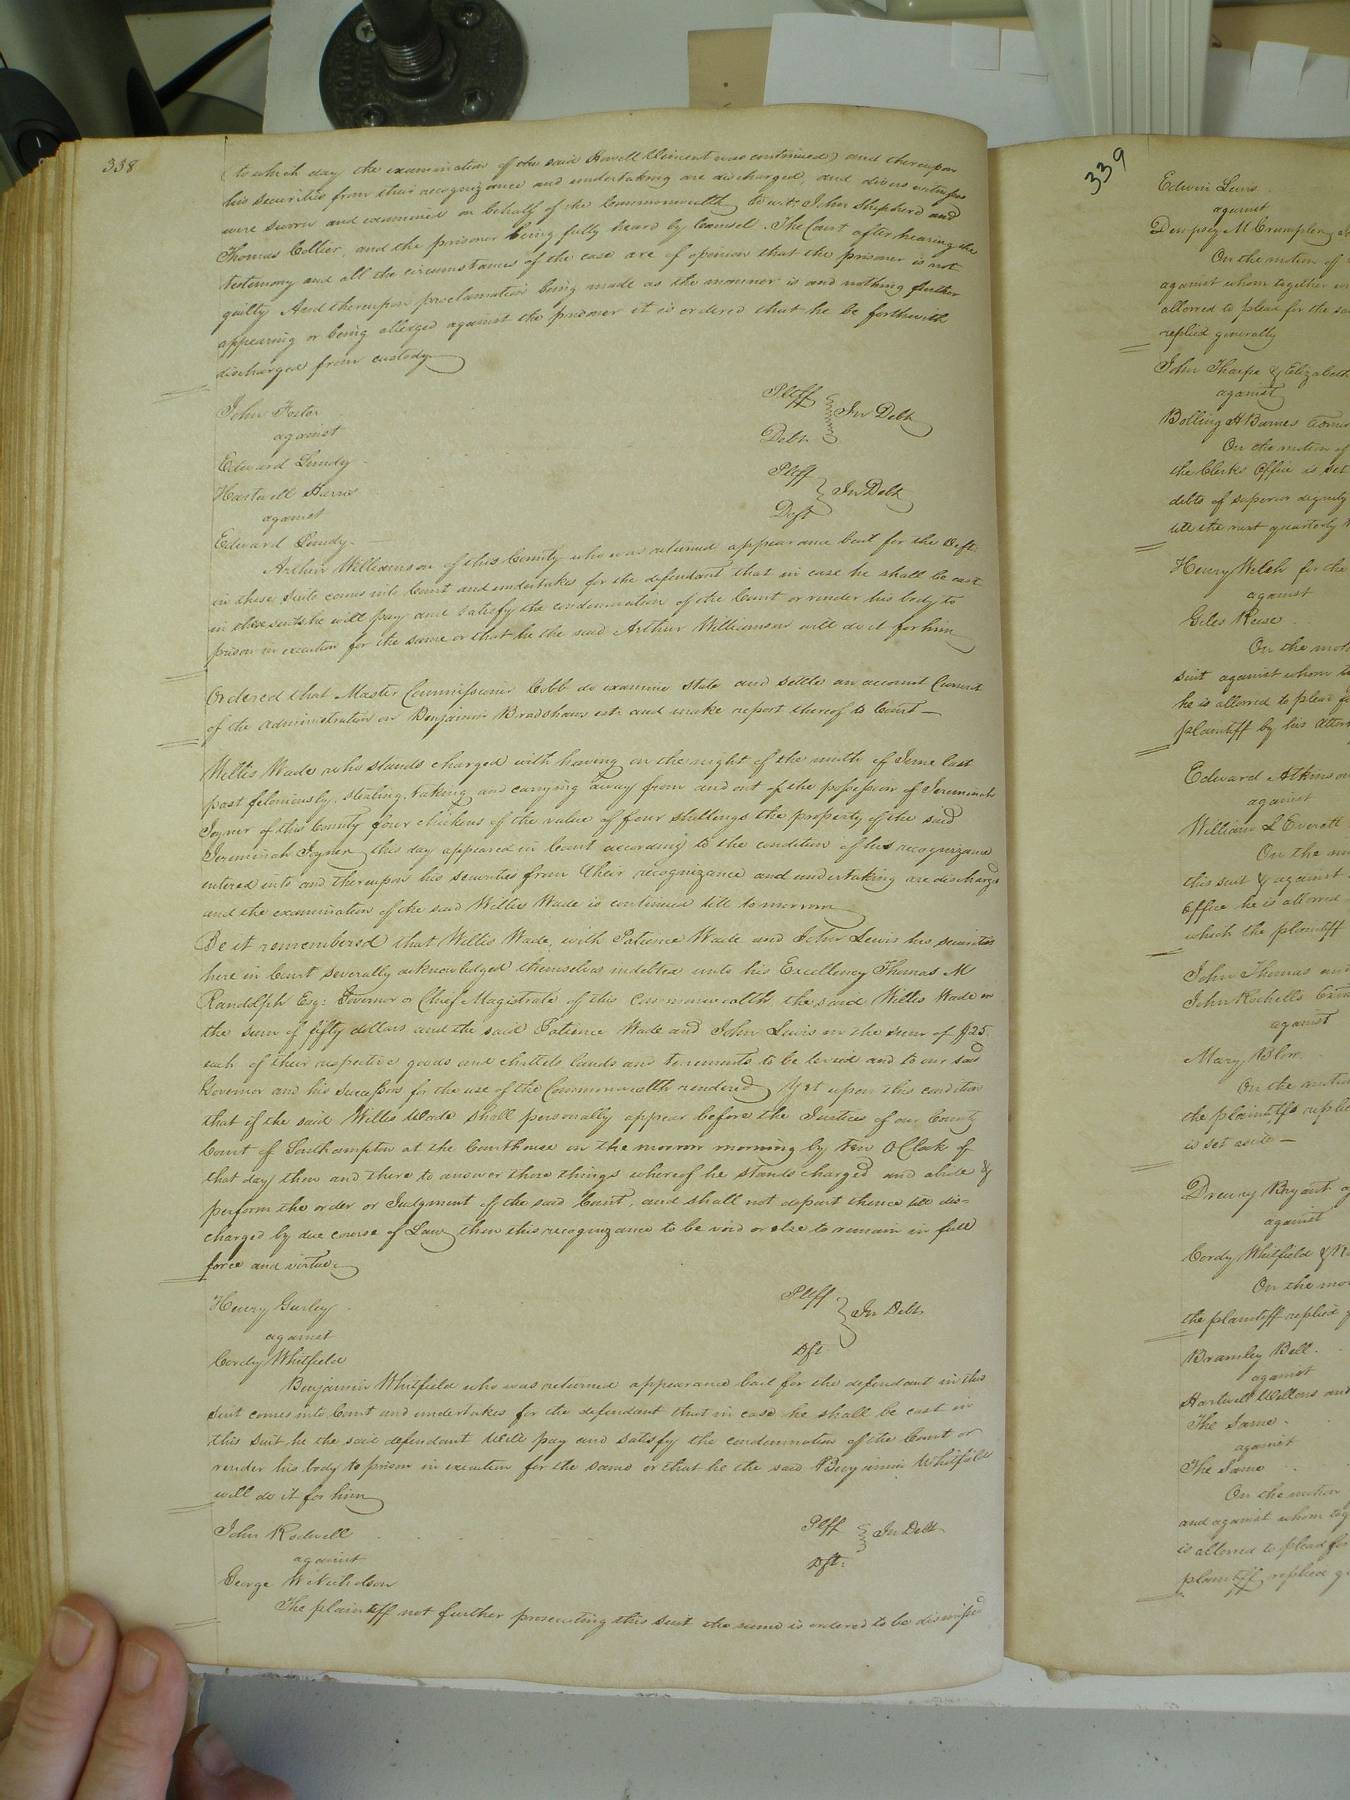 338
(to which day the examination of the said Howell Clement was continued) and thereupon
his securities from their recognizance and undertaking are discharged, and divers witnesses
were sworn and examined on behalf of the Commonwealth to wit: John Shepherd and
Thomas Collier, and the prisoner being fully heard by Counsel. The Court after hearing the
testimony and all the circumstances of the case are of opinion that the prisoner is not
guilty And thereupon proclamation being made as the manner is and nothing further
appearing or being alledged against the prisoner it is ordered that he be forthwith
discharged from custody
John Foster Pltff
against In Debt
Edward Lundy Debt
Hartwell Harris Pltff
against In Debt
Edward Lundy Deft
Arthur Williamson of this County who was returned appearance bail for the Deft
in these suits comes into Court and undertakes for the defendant that in case he shall be cast
in these suits he will pay and satisfy the condemnation of the Court or render his body to
prison in execution for the same or that he the said Arthur Williamson will do it for him
Ordered that Master Commissioner Cobb do examine state and settle an account Current
of the administration on Benjamin Bradshaws est: and make report thereof to Court
Willis Wade who stands charged with having on the night of the ninth of June last
past feloniously, stealing, taking and carrying away from and out of the possession of Jeremiah
Joyner of this County four chickens of the value of four shillings the property of the said
Jeremiah Joyner, this day appeared in Court according to the condition of his recognizance
entered into and thereupon his securities from their recognizance and undertaking are discharged
and the examination of the said Willis Wade is continued till tomorrow
Be it remembered that Willis Wade, with Patience Wade and John Lewis his securities
here in Court severally acknowledged themselves indebted unto his Excellency Thomas M
Randolph Esq: Governor or Chief Magistrate of this Commonwealth, the said Willis Wade in
the sum of fifty dollars and the said Patience Wade and John Lewis in the sum of $25.
each of their respective goods and chattels lands and tenements to be levied and to our said
Governor and his Successors for the use of the Commonwealth rendered Yet upon this condition
that if the said Willis Wade shall personally appear before the Justices of our County
Court of Southampton at the Courthouse on the morrow morning by ten OClock of
that day then and there to answer those things whereof he stands charged and abide &
perform the order or Judgment of the said Court, and shall not depart thence till dis=
charged by due course of Law, then this recognizance to be void or else to remain in full
force and virtue
Henry Gurley Pltff
against In Debt
Cordy Whitfield Dft
Benjamin Whitfield who was returned appearance bail for the defendant in this
suit comes into Court and undertakes for the defendant that in case he shall be cast in
this suit he the said defendant will pay and satisfy the condemnation of the Court or
render his body to prison in execution for the same or that he the said Benjamin Whitfield
will do it for him
John Rodwell Pltff
against In Debt
George W Nicholson Dft:
The plaintiff not further prosecuting this suit the same is ordered to be dismissed
339
Edwin Lewis
against
Dempsey M Crumpler
On the motion of
against whom together
allowed to plead for the
replied generally
John Tharpe & Elizabeth
against
Bolling H Barnes
On the motion of
the Clerks Office is set
debts of superior dignity
till the next quarterly
Henry Welsh for the
against
Giles Reese
On the
suit against whom
he is allowed to plead
plaintiff by his attorn
Edward Atkinson
against
William L Everett
On the
this suit & against
Office he is allowed
which the plaintiff
John Thomas and
John Rochells
against
Mary Blow
On the motion
the plaintiffs
is set aside
Drewry Bryant
against
Cordy Whitfield &
On the
the plaintiff replied
Bramley Bell
against
Hartwell Wellons and
The Same
against
The Same
On the motion
and against whom
is allowed to plead for
plaintiff replied